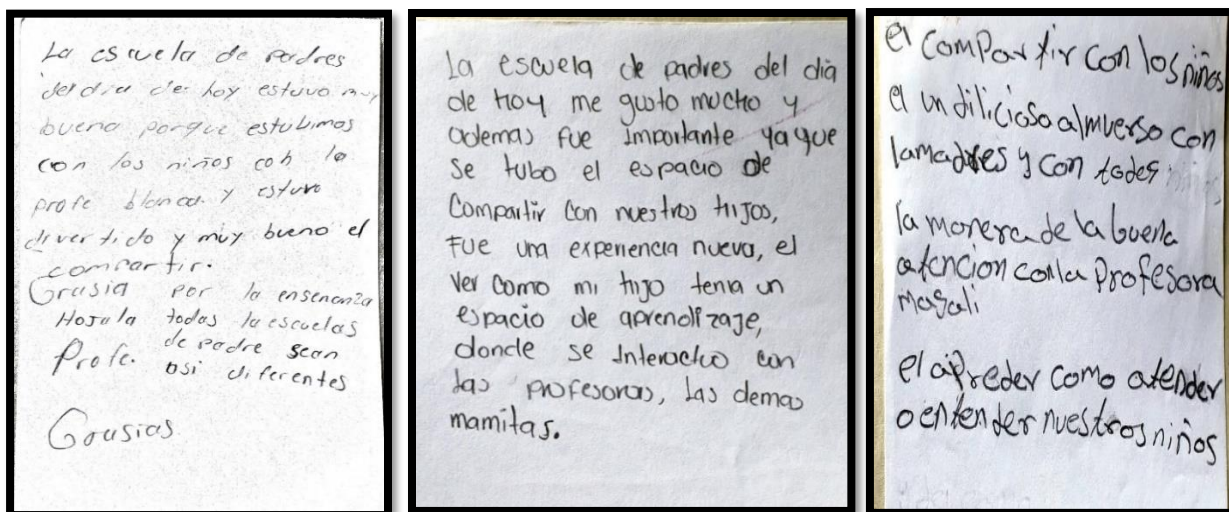 La escuela de padres
del dia de hoy estuvo muy
bueno porque estubimos
con los niños con la
profe blanca. y estuvo
divertido y muy bueno el
compartir.
Grasia por la enseñanza
Hojala todas la escuelas
Profe. de padre sean
asi diferentes
Grasias
La escuela de padres del dia
de hoy me gusto mucho y
ademas fue Importante ya que
se tubo el espacio de
Compartir con nuestros hijos,
Fue una experiencia nueva, el
ver como mi hijo tenia un
espacio de aprendizaje,
donde se Interactuo con
las profesoras, las demas
mamitas.
el compartir con los niños
el un dilicioso almuerso con
lamadres y con todes
la manera de la buena
atencion con la Profesora
Magali
el apreder como atender
o entender nuestros niños